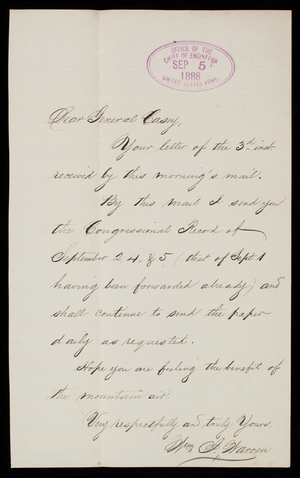 OFFICE OF THE
CHIEF OF ENGINEERS
SEP 5
1888
UNITED STATES ARMY.
Dear General Casey,
Your letter of the 3d. inst.
received by this morning's mail.
By this mail I send you
the Congressional Record of
September 2, 4, & 5 (that of Sept 1
having been forwarded already) and
shall continue to send the paper
daily as requested.
Hope you are feeling the benefit of
the mountain air.
Very respectfully and truly Yours.
Wm J. Warren